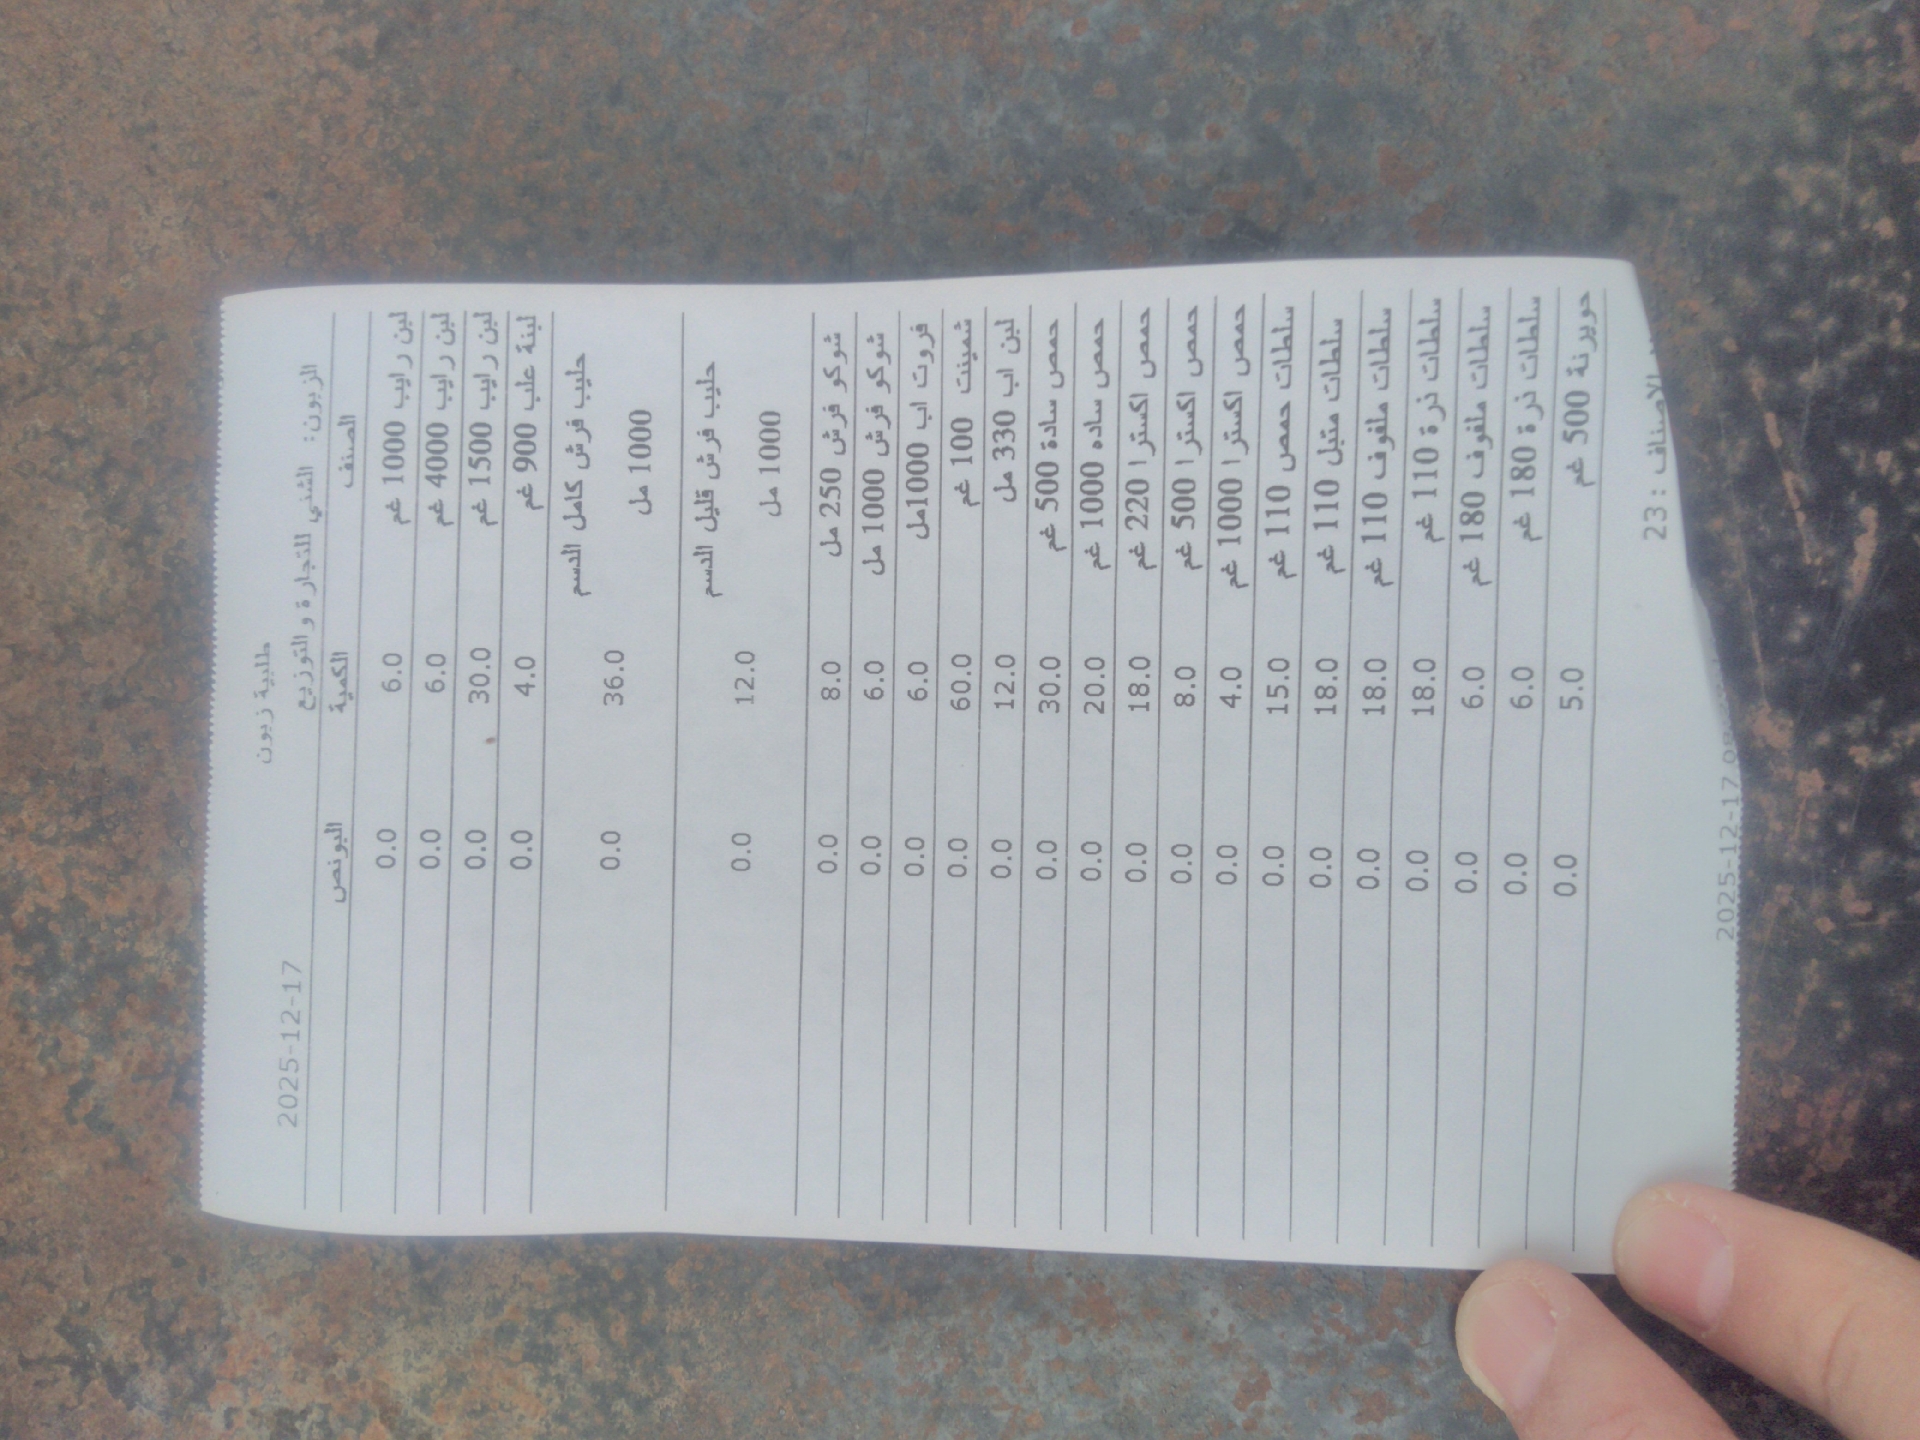 طلبية زبون
الزبون: الشني للتجارة والتوزيع 2025-12-17
الصنف الكمية البونص
لبن رايب 1000 غم 6.0 0.0
لبن رايب 4000 غم 6.0 0.0
لبن رايب 1500 غم 30.0 0.0
لبنة علب 900 غم 4.0 0.0
حليب فرش كامل الدسم 36.0 0.0
1000 مل
حليب فرش قليل الدسم 12.0 0.0
1000 مل
شوكو فرش 250 مل 8.0 0.0
شوكو فرش 1000 مل 6.0 0.0
فروت اب 1000مل 6.0 0.0
شمينت 100 غم 60.0 0.0
لبن اب 330 مل 12.0 0.0
حمص سادة 500 غم 30.0 0.0
حمص ساده 1000 غم 20.0 0.0
حمص اكسترا 220 غم 18.0 0.0
حمص اكسترا 500 غم 8.0 0.0
حمص اكسترا 1000 غم 4.0 0.0
سلطات حمص 110 غم 15.0 0.0
سلطات متبل 110 غم 18.0 0.0
سلطات ملفوف 110 غم 18.0 0.0
سلطات ذرة 110 غم 18.0 0.0
سلطات ملفوف 180 غم 6.0 0.0
سلطات ذرة 180 غم 6.0 0.0
حويرنة 500 غم 5.0 0.0
الاصناف : 23
2025-12-17